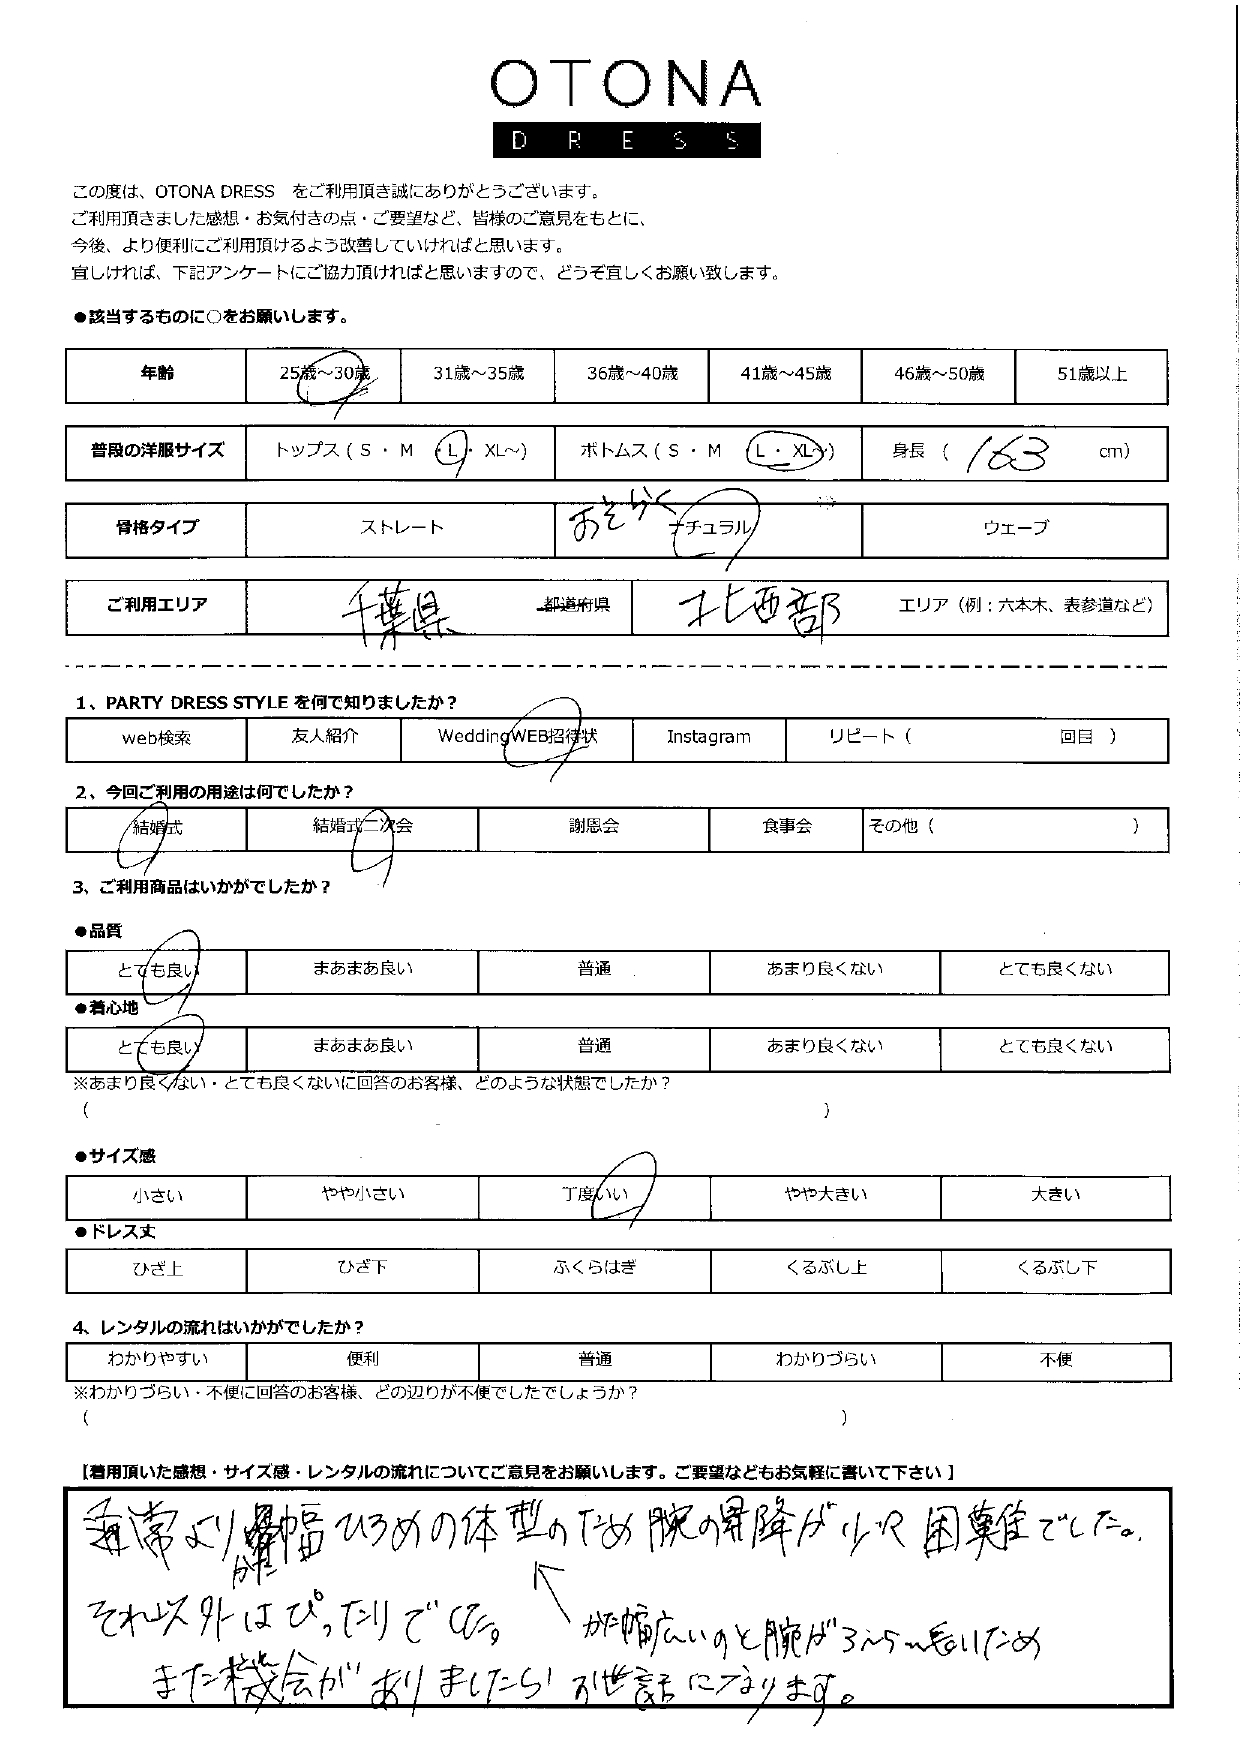 OTONA
DRESS
この度は、OTONA DRESS　をご利用頂き誠にありがとうございます。
ご利用頂きました感想・お気付きの点・ご要望など、皆様のご意見をもとに、
今後、より便利にご利用頂けるよう改善していければと思います。
宜しければ、下記アンケートにご協力頂ければと思いますので、どうぞ宜しくお願い致します。
●該当するものに○をお願いします。
年齢 25歳～30歳 31歳～35歳 36歳～40歳 41歳～45歳 46歳～50歳 51歳以上
普段の洋服サイズ トップス ( S ・ M ・L・ XL～) ボトムス ( S ・ M ・L ・ XL～) 身長 ( 163 cm)
骨格タイプ ストレート おそらく ナチュラル ウェーブ
ご利用エリア 千葉県 都道府県 北西部 エリア（例：六本木、表参道など）
1、PARTY DRESS STYLE を何で知りましたか？
web検索 友人紹介 WeddingWEB招待状 Instagram リピート（ 回目 ）
2、今回ご利用の用途は何でしたか？
結婚式 結婚式二次会 謝恩会 食事会 その他（ ）
3、ご利用商品はいかがでしたか？
●品質
とても良い まあまあ良い 普通 あまり良くない とても良くない
●着心地
とても良い まあまあ良い 普通 あまり良くない とても良くない
※あまり良くない・とても良くないに回答のお客様、どのような状態でしたか？
（ ）
●サイズ感
小さい やや小さい 丁度いい やや大きい 大きい
●ドレス丈
ひざ上 ひざ下 ふくらはぎ くるぶし上 くるぶし下
4、レンタルの流れはいかがでしたか？
わかりやすい 便利 普通 わかりづらい 不便
※わかりづらい・不便に回答のお客様、どの辺りが不便でしたでしょうか？
（ ）
【着用頂いた感想・サイズ感・レンタルの流れについてご意見をお願いします。ご要望などもお気軽に書いて下さい】
通常よりかた幅ひろめの体型のため腕の昇降が少し困難でした。
それ以外はぴったりでした。
かた幅広いのと腕が3～5cm長いため
また機会がありましたらお世話になります。